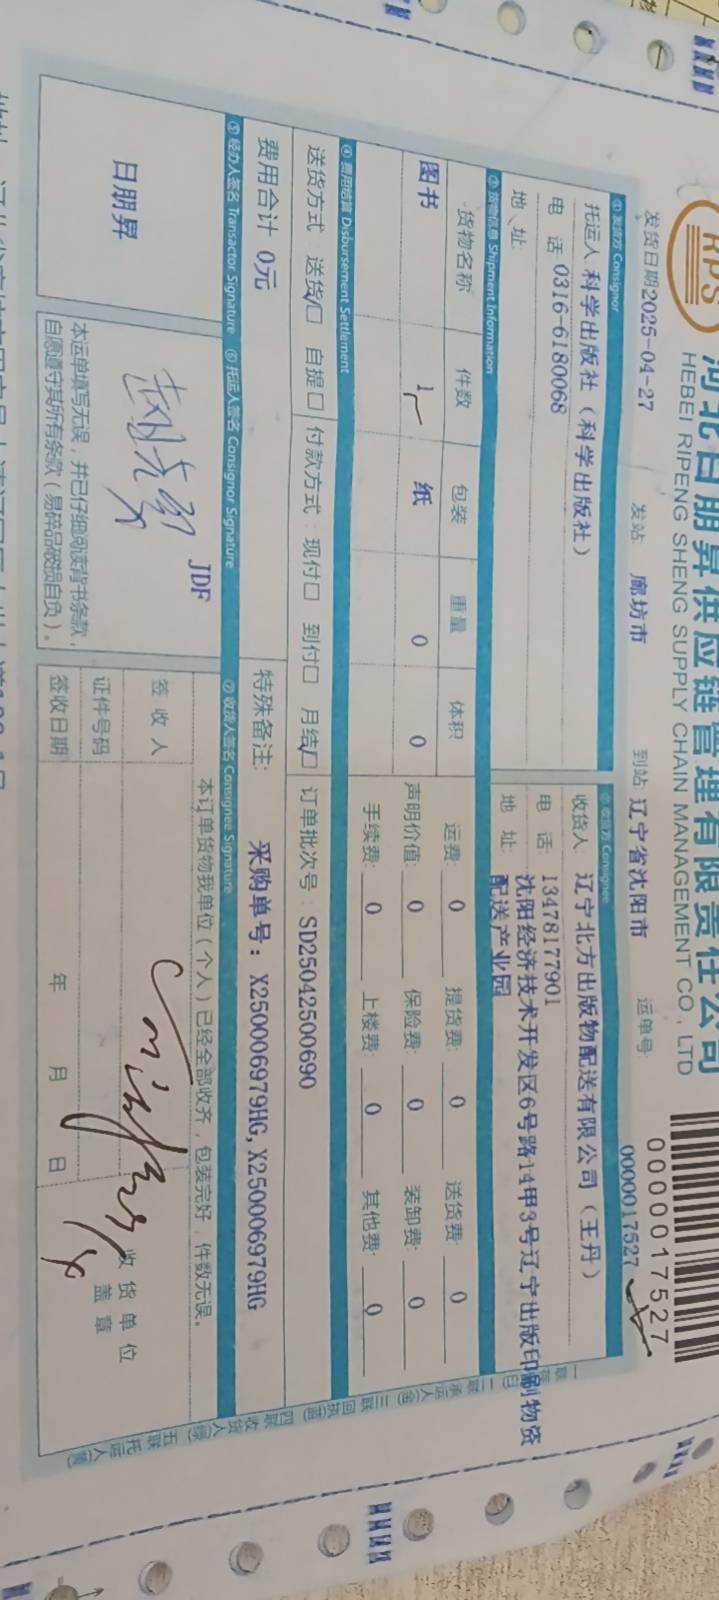 RPS
河北日朋昇供应链管理有限责任公司
HEBEI RIPENG SHENG SUPPLY CHAIN MANAGEMENT CO., LTD
0000017527
发货日期2025-04-27 发站: 廊坊市 到站: 辽宁省沈阳市 运单号: 0000017527
① 发货方 Consignor ② 收货方 Consignee
托运人 科学出版社（科学出版社） 收货人: 辽宁北方出版物配送有限公司（王丹）
电 话 0316-6180068 电 话: 13478177901
地 址: 地 址: 沈阳经济技术开发区6号路14甲3号辽宁出版印刷物资
配送产业园
③ 货物信息 Shipment Information
货物名称 件数 包装 重量 体积 运费: 0 提货费: 0 送货费: 0
图书 1 纸 0 0 声明价值: 0 保险费: 0 装卸费: 0
手续费: 0 上楼费: 0 其他费: 0
④ 费用结算 Disbursement Settlement
送货方式: 送货□ 自提□ 付款方式: 现付□ 到付□ 月结□ 订单批次号: SD25042500690
费用合计 0元 特殊备注: 采购单号: X250006979HG,X250006979HG
⑤ 经办人签名 Transactor Signature ⑥ 托运人签名 Consignor Signature ⑦ 收货人签名 Consignee Signature
日朋昇
JDF
本运单填写无误，并已仔细阅读背书条款，
自愿遵守其所有条款（易碎品破损自负）。
本订单货物我单位（个人）已经全部收齐，包装完好，件数无误。
签 收 人
证件号码
签收日期 年 月 日
收货单位
盖 章